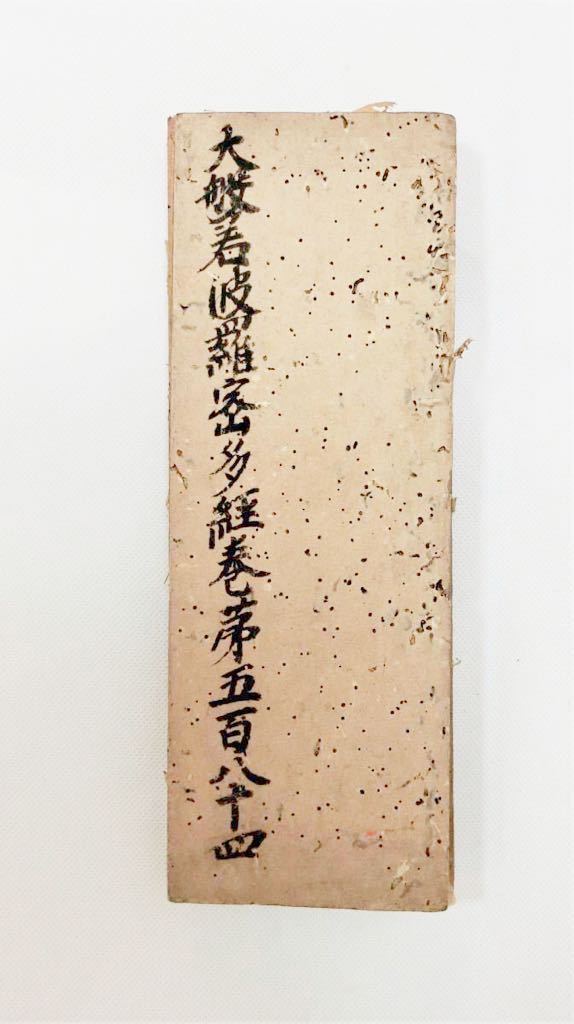 大般若波羅密多經卷第五百八十四